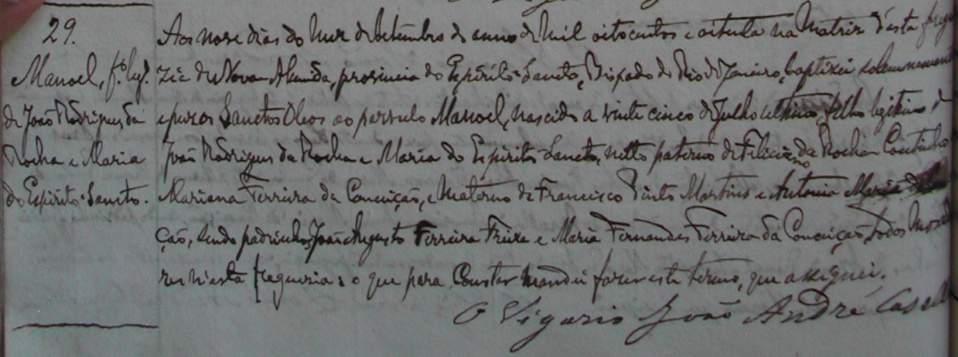 29.
Manoel, fo. leg.
de João Rodrigues da
Rocha e Maria
do Espirito-Sancto.
Aos nove dias do mez de Setembro do anno de mil oitocentos e oitenta na Matriz d'esta fregue
zia de Nova Almeida, provincia do Espirito-Sancto, Bispado do Rio de Janeiro, baptizei solemnemente
e puz os Sanctos Oleos ao parvulo Manoel, nascido a vinte cinco de Julho ultimo, filho legitimo de
João Rodrigues da Rocha e Maria do Espirito-Sancto, netto paterno de Feliciano da Rocha Coutinho
Mariana Ferreira da Conceição, e materno de Francisco Pinto Martins e Antonia Maria
ção, sendo padrinhos João Augusto Ferreira Freire e Maria Fernandes Ferreira da Conceição, todos mora
res n'esta freguezia: o que para constar mandei fazer este termo, que assignei.
O Vigario João André Casella